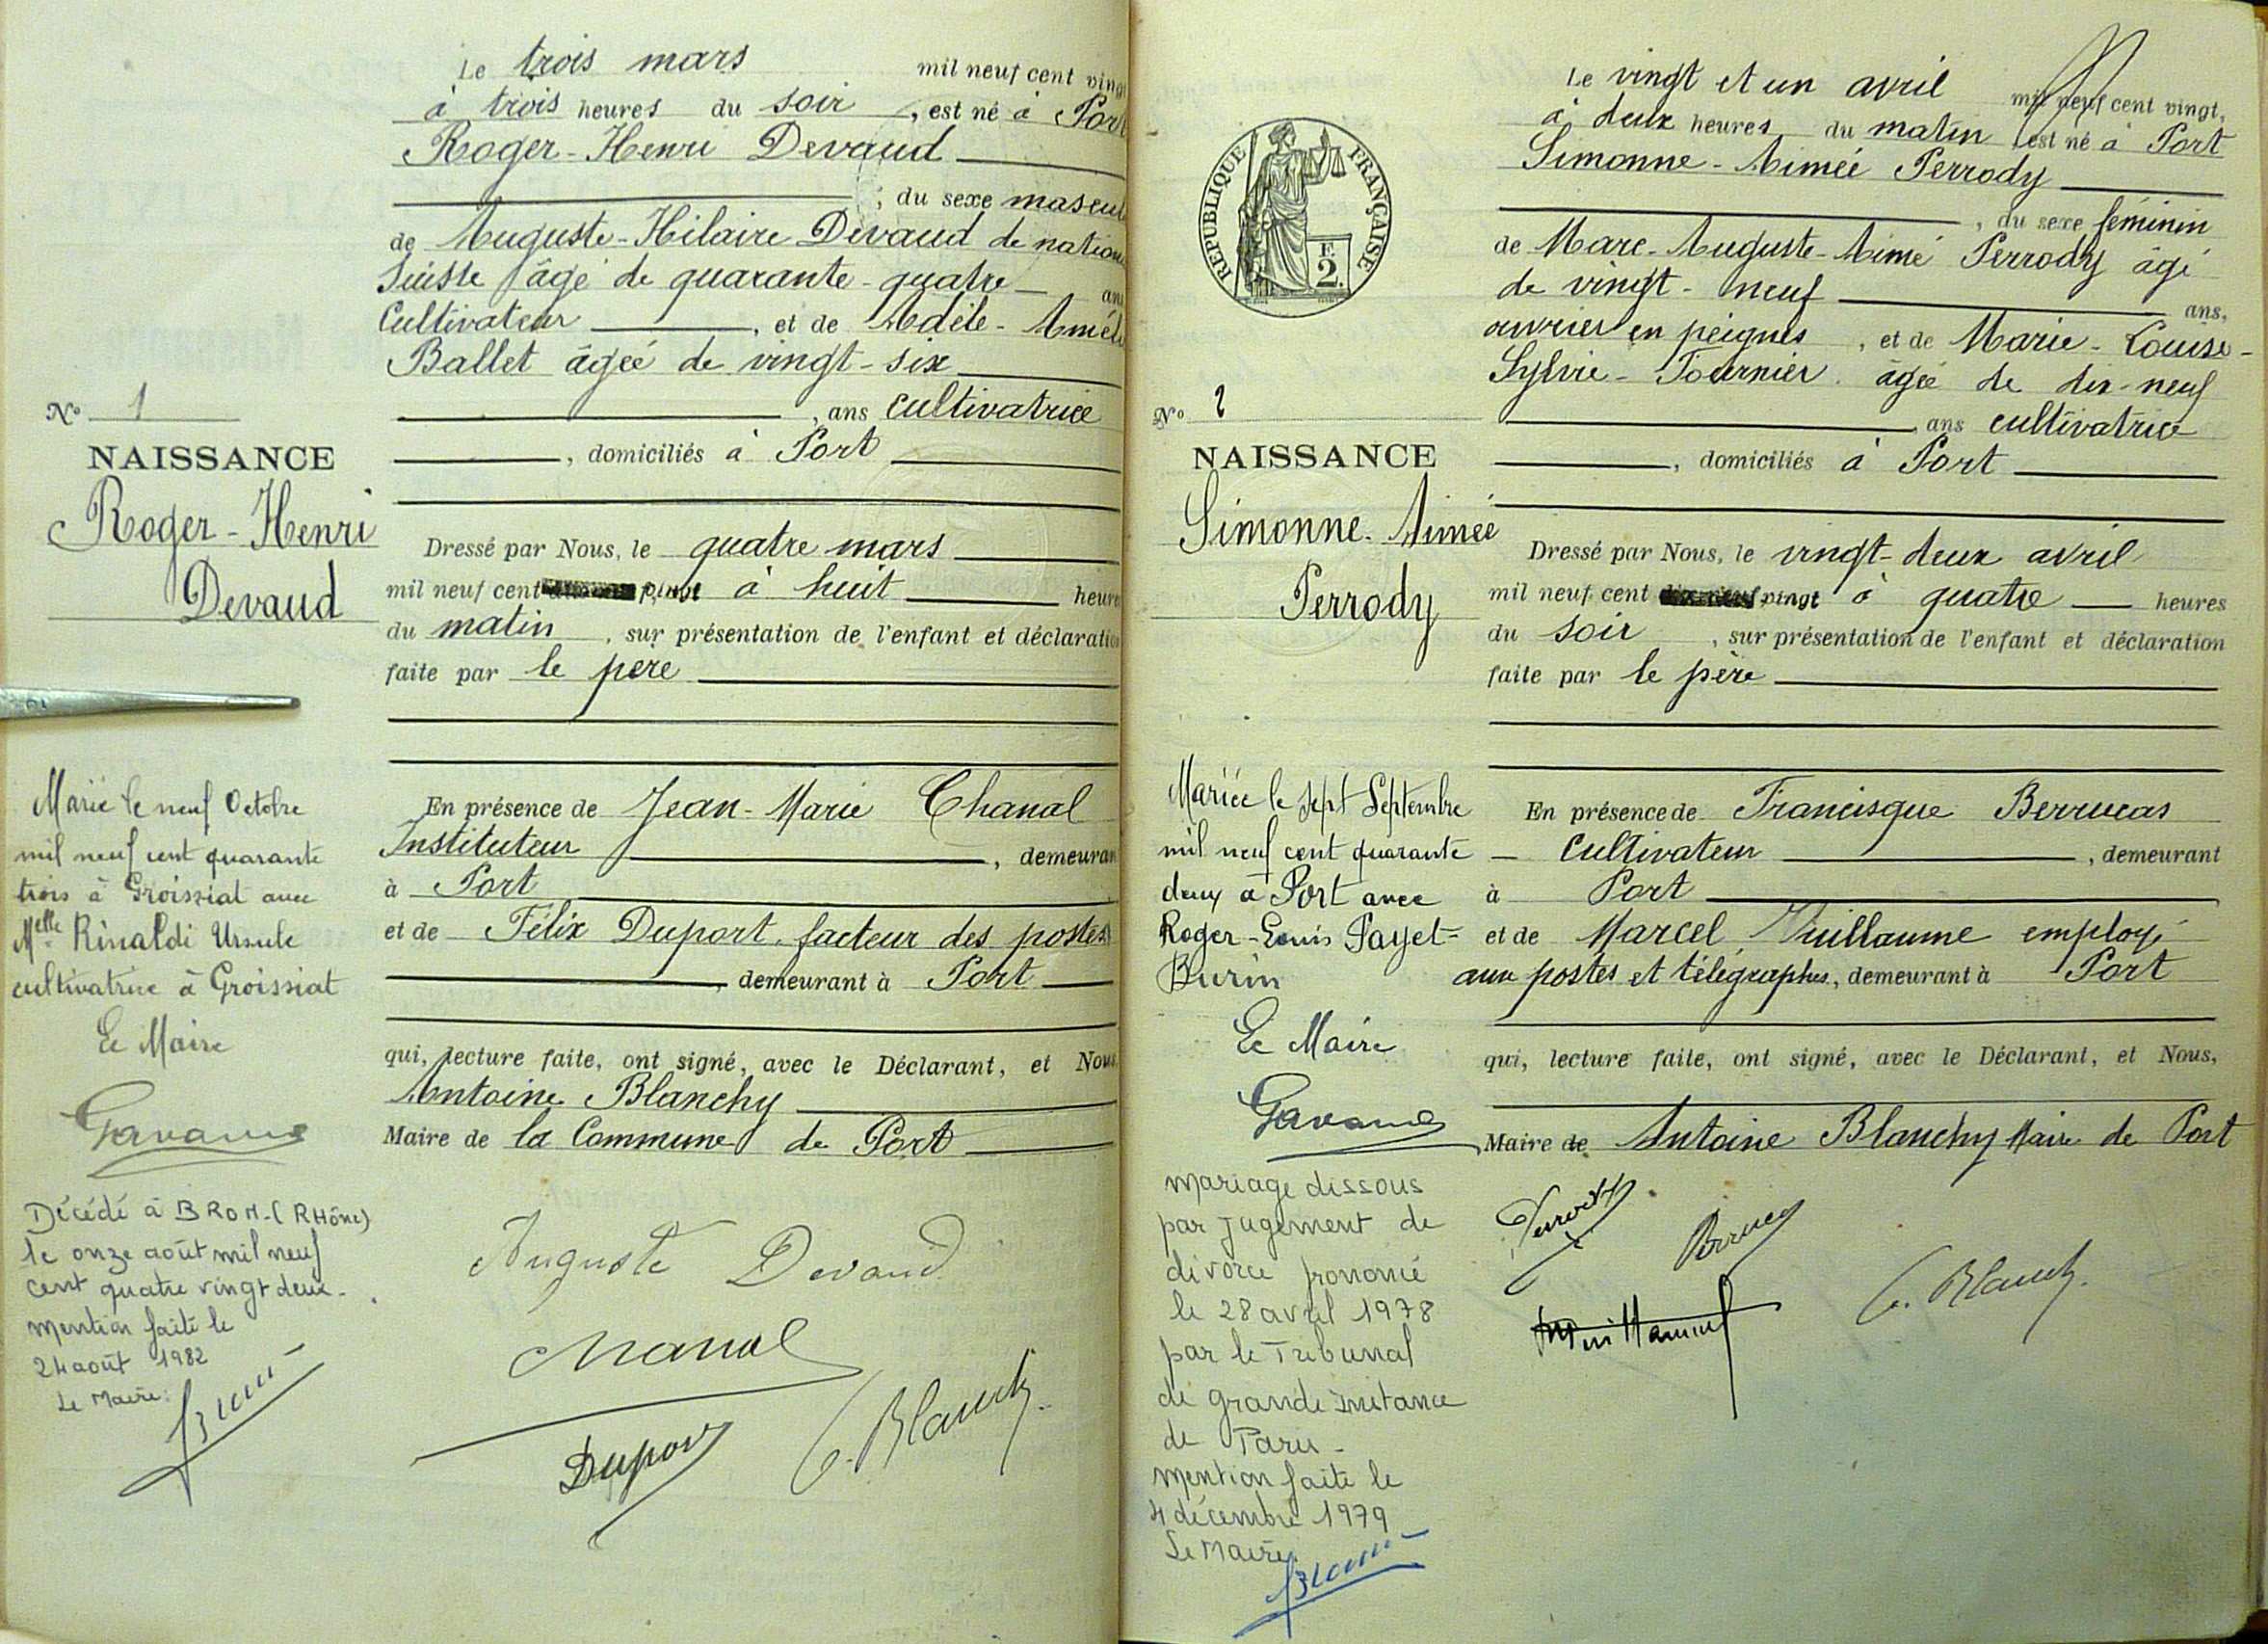 Le trois mars mil neuf cent vingt
à trois heures du soir, est né à Port
Roger-Henri Devaud
; du sexe mascul
de Auguste-Hilaire Devaud de nation
Suisse âgé de quarante-quatre ans
Cultivateur, et de Adèle-Amél
Ballet âgée de vingt-six
, ans cultivatrice
, domiciliés à Port
No 1
NAISSANCE
Roger-Henri
Devaud
Dressé par Nous, le quatre mars
mil neuf cent vingt à huit heure
du matin, sur présentation de l'enfant et déclaration
faite par le père
En présence de Jean-Marie Chanal
Instituteur, demeuran
à Port
et de Félix Duport, facteur des postes
, demeurant à Port
qui, lecture faite, ont signé, avec le Déclarant, et Nous
Antoine Blanchy
Maire de la Commune de Port
Marié le neuf Octobre
mil neuf cent quarante
trois à Groissiat avec
Melle Rinaldi Ursule
cultivatrice à Groissiat
Le Maire
Décédé à BRON-(RHône)
le onze août mil neuf
cent quatre vingt deux.
mention faite le
24 août 1982
Le Maire:
Auguste Devaud
Chanal
Duport
Le vingt et un avril mil neuf cent vingt,
à deux heures du matin est né à Port
Simonne-Aimée Perrody
, du sexe féminin
de Marc-Auguste-Aimé Perrody âgé
de vingt-neuf ans,
ouvrier en peignes, et de Marie-Louise-
Sylvie-Tournier âgée de dix-neuf
, ans cultivatrice
, domiciliés à Port
REPUBLIQUE FRANÇAISE
F.
2.
No 2
NAISSANCE
Simonne-Aimée
Perrody
Dressé par Nous, le vingt-deux avril
mil neuf cent dix-neuf vingt à quatre heures
du soir, sur présentation de l'enfant et déclaration
faite par le père
En présence de Francisque Berrucas
Cultivateur, demeurant
à Port
et de Marcel Vuillaume employé
aux postes et télégraphes, demeurant à Port
qui, lecture faite, ont signé, avec le Déclarant, et Nous,
Maire de Antoine Blanchy Maire de Port
Mariée le sept Septembre
mil neuf cent quarante
deux à Port avec
Roger-Louis Payet-
Burin
Le Maire
mariage dissous
par jugement de
divorce prononcé
le 28 avril 1978
par le Tribunal
de grande Instance
de Paris-
mention faite le
4 décembre 1979
Le Maire